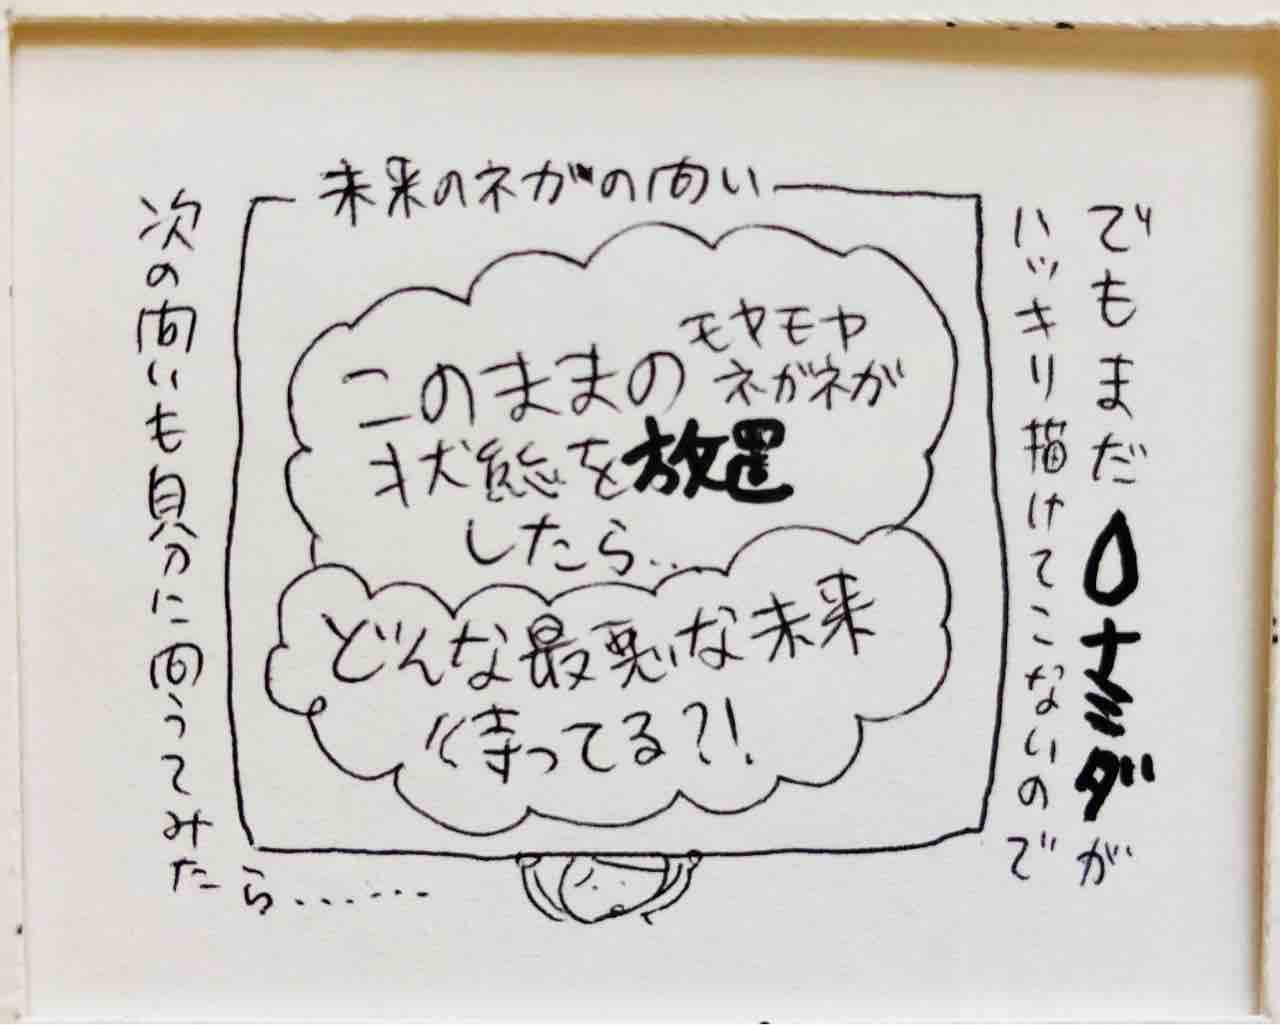 でもまだ０ナミダが
ハッキリ描けてこないので
未来のネガの問い
このままの
モヤモヤ
ネガネガ
状態を放置
したら...
どんな最悪な未来
が待ってる?!
次の問いも自分に問うてみたら......